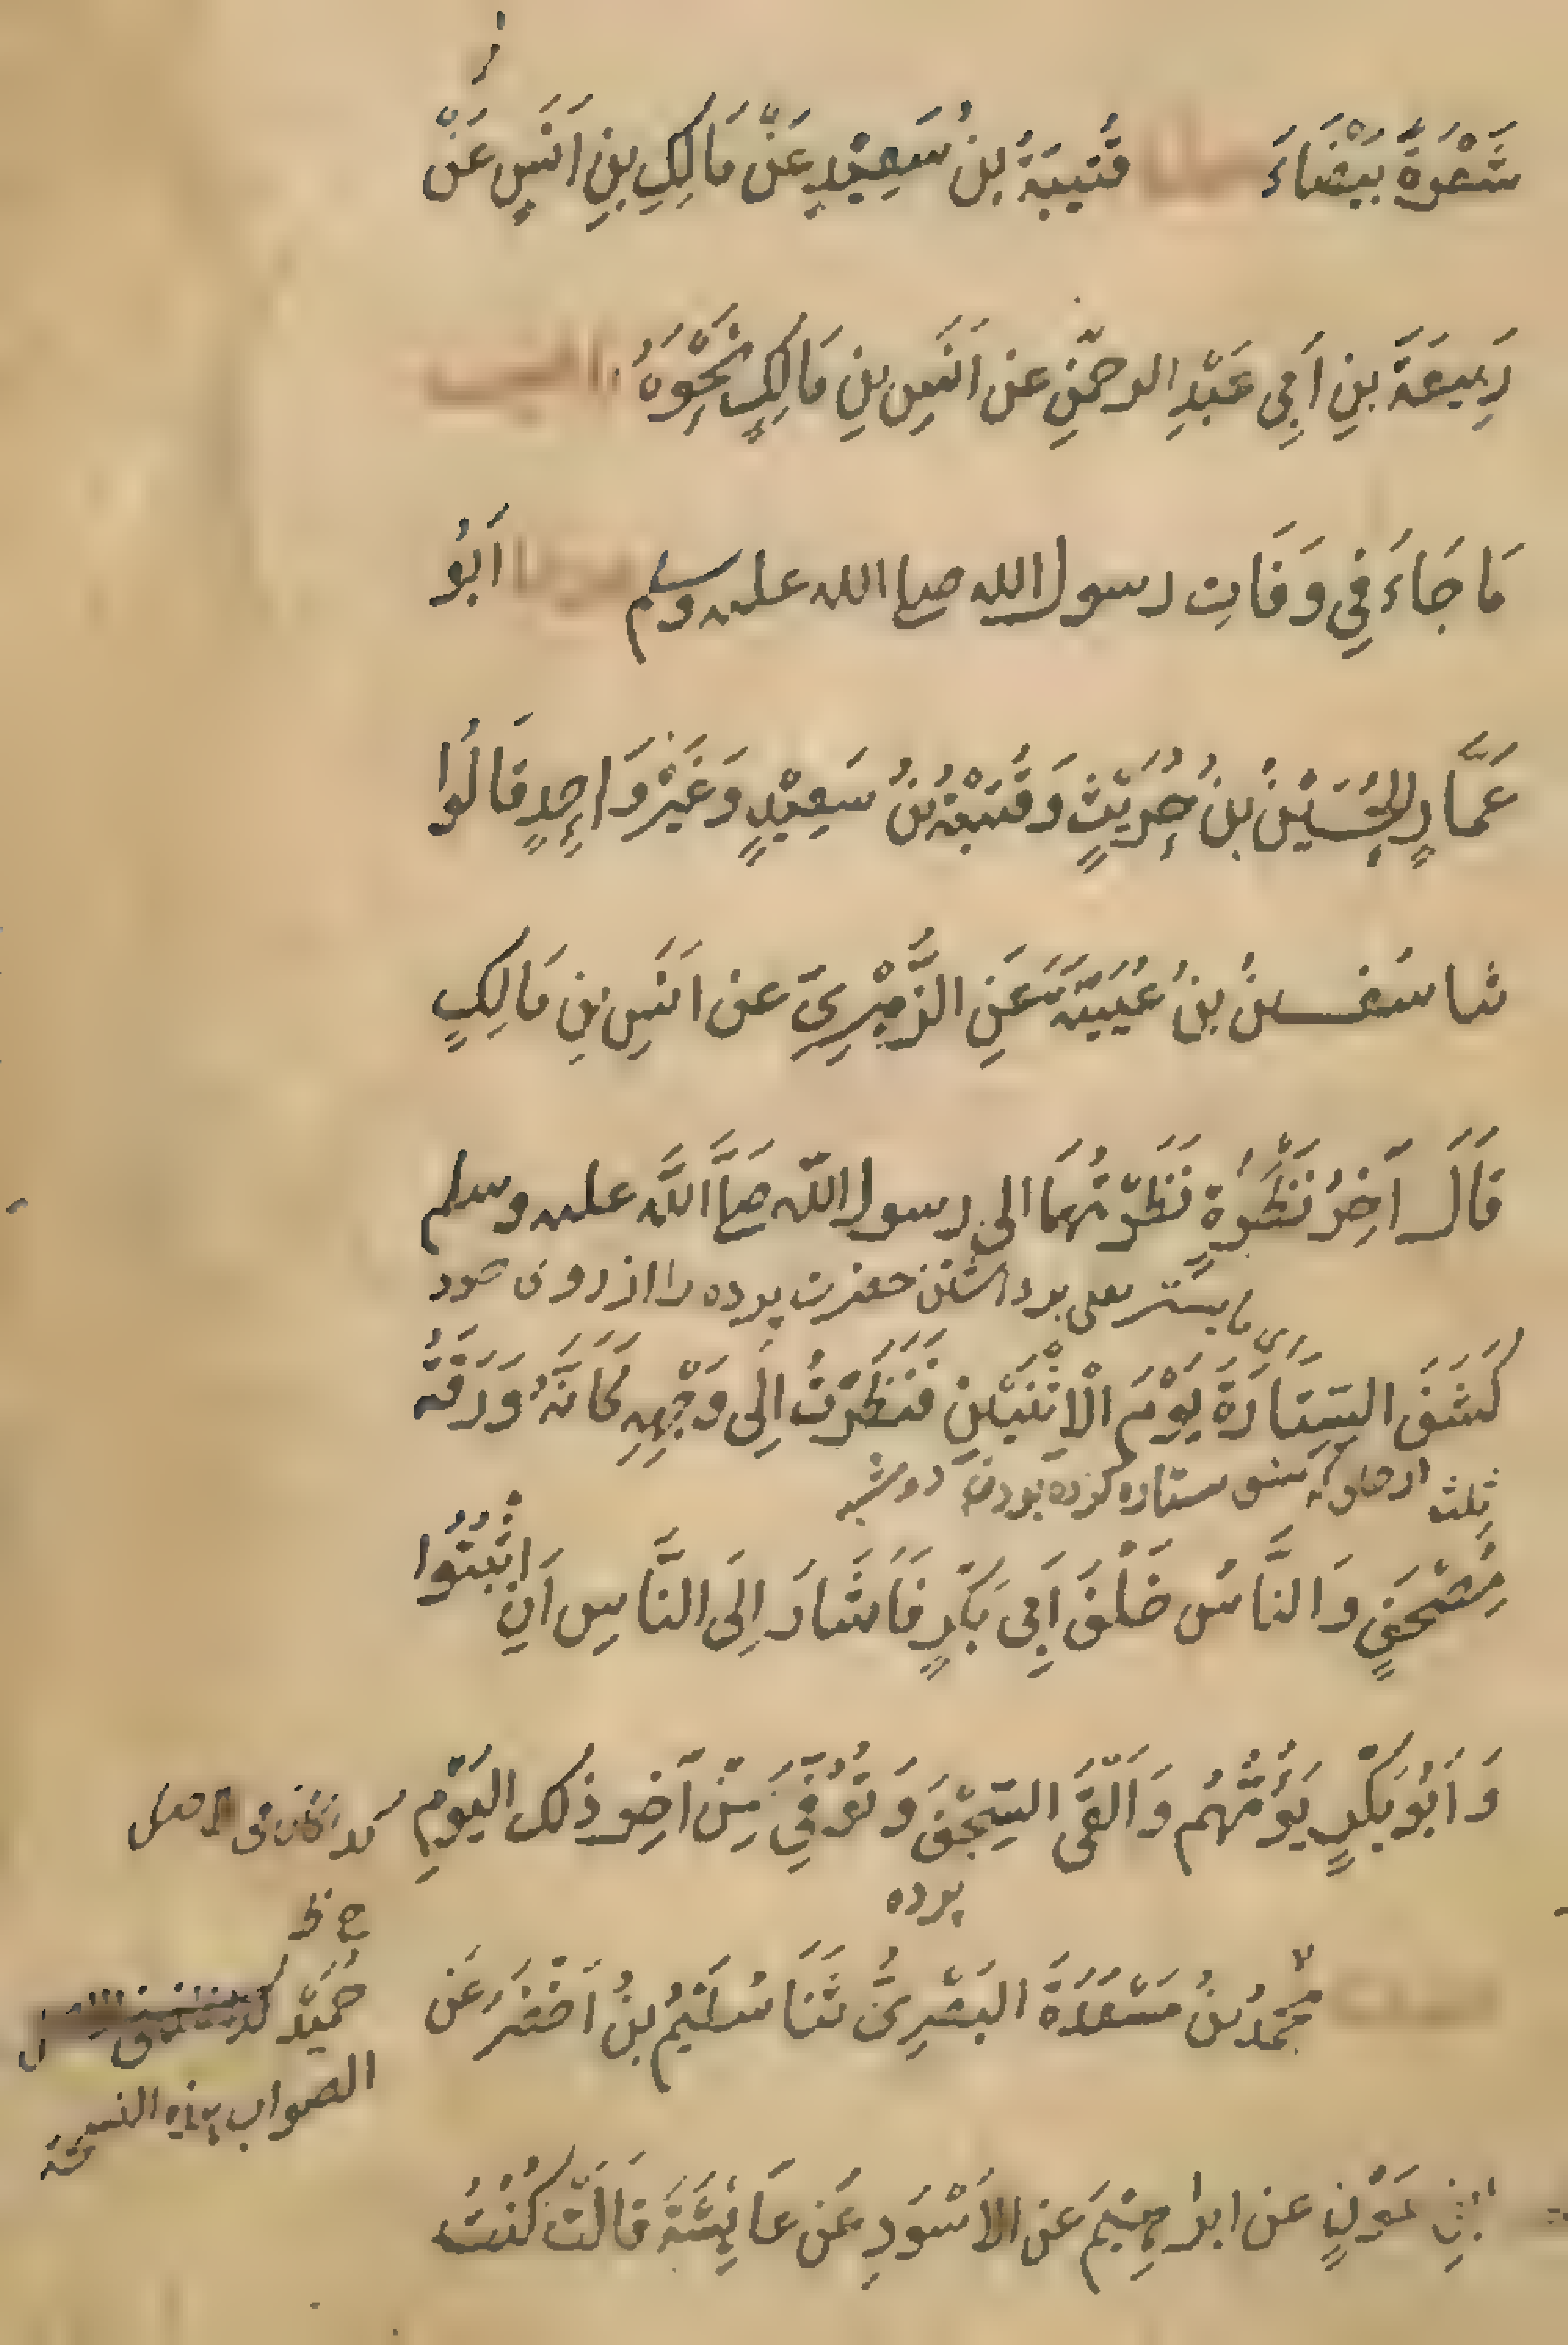 شَعْرَةً بَيْضَاءَ حدثنا قُتَيبَةُ بنُ سَعِيْدٍ عَنْ مَالِكِ بنِ اَنَسٍ عَنْ
رَبِيعَةَ بنِ اَبِي عَبْدِ الرحمٰنِ عن اَنَسِ بنِ مَالِكٍ نَحْوَهُ باب
مَا جَاءَ فِي وَفَاتِ رسول الله صلى الله عليه وسلم حدثنا اَبُو
عَمَّارٍ الحُسَيْنُ بنُ حُرَيْثٍ وَقُتَيْبَةُ بنُ سَعِيْدٍ وَغَيْرُ وَاحِدٍ قَالُوا
ثنا سُفينُ بنُ عُيَيْنَةَ عَنِ الزُّهْرِيِّ عن اَنَسِ بنِ مَالِكٍ
قَالَ آخِرُ نَظْرَةٍ نَظَرْتُهَا الى رسول الله صَلَّى اللَّه عليه وسلم
ما يستر يعنى برداشتن حضرت پرده را از روى خود
كَشَفَ السِّتَارَةَ يَوْمَ الْاِثْنَيْنِ فَنَظَرْتُ اِلَى وَجْهِهِ كَانَّهُ وَرَقَةُ
ستاره كرده بودند دوشنبه
مُصْحَفٍ وَالنَّاسُ خَلْفَ اَبِي بَكْرٍ فَاَشَارَ اِلَى النَّاسِ اَنِ اثْبُتُوا
وَاَبُو بَكْرٍ يَؤُمُّهُم وَاَلْقَى السِّجْفَ وَتُوُفِّيَ مِنْ آخِرِ ذٰلك اليَوْمِ
كذا كان فى الاصل
پرده
حدثنا محمَّدُ بنُ مَسْعَدَةَ البَصْرِىُّ ثَنَا سُلَيْمُ بنُ اَخْضَرَ عَن
حُمَيْد
الصواب بهذه النسخة
ابنِ عَوْنٍ عن ابراهِيْمَ عن الاَسْوَدِ عَن عَائِشَةَ قَالَتْ كُنْتُ